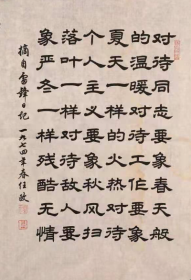 对待同志要象春天般
的温暖对待工作要象
夏天一样的火热对待
个人主义要象秋风扫
落叶一样对待敌人要
象严冬一样残酷无情
摘自雷锋日记 一九七四年春任政